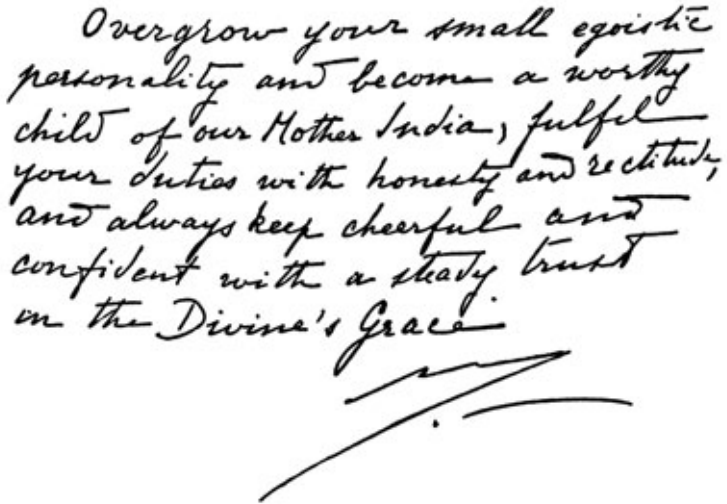 Overgrow your small egoistic
personality and become a worthy
child of our Mother India, fulfil
your duties with honesty and rectitude,
and always keep cheerful and
confident with a steady trust
in the Divine's Grace